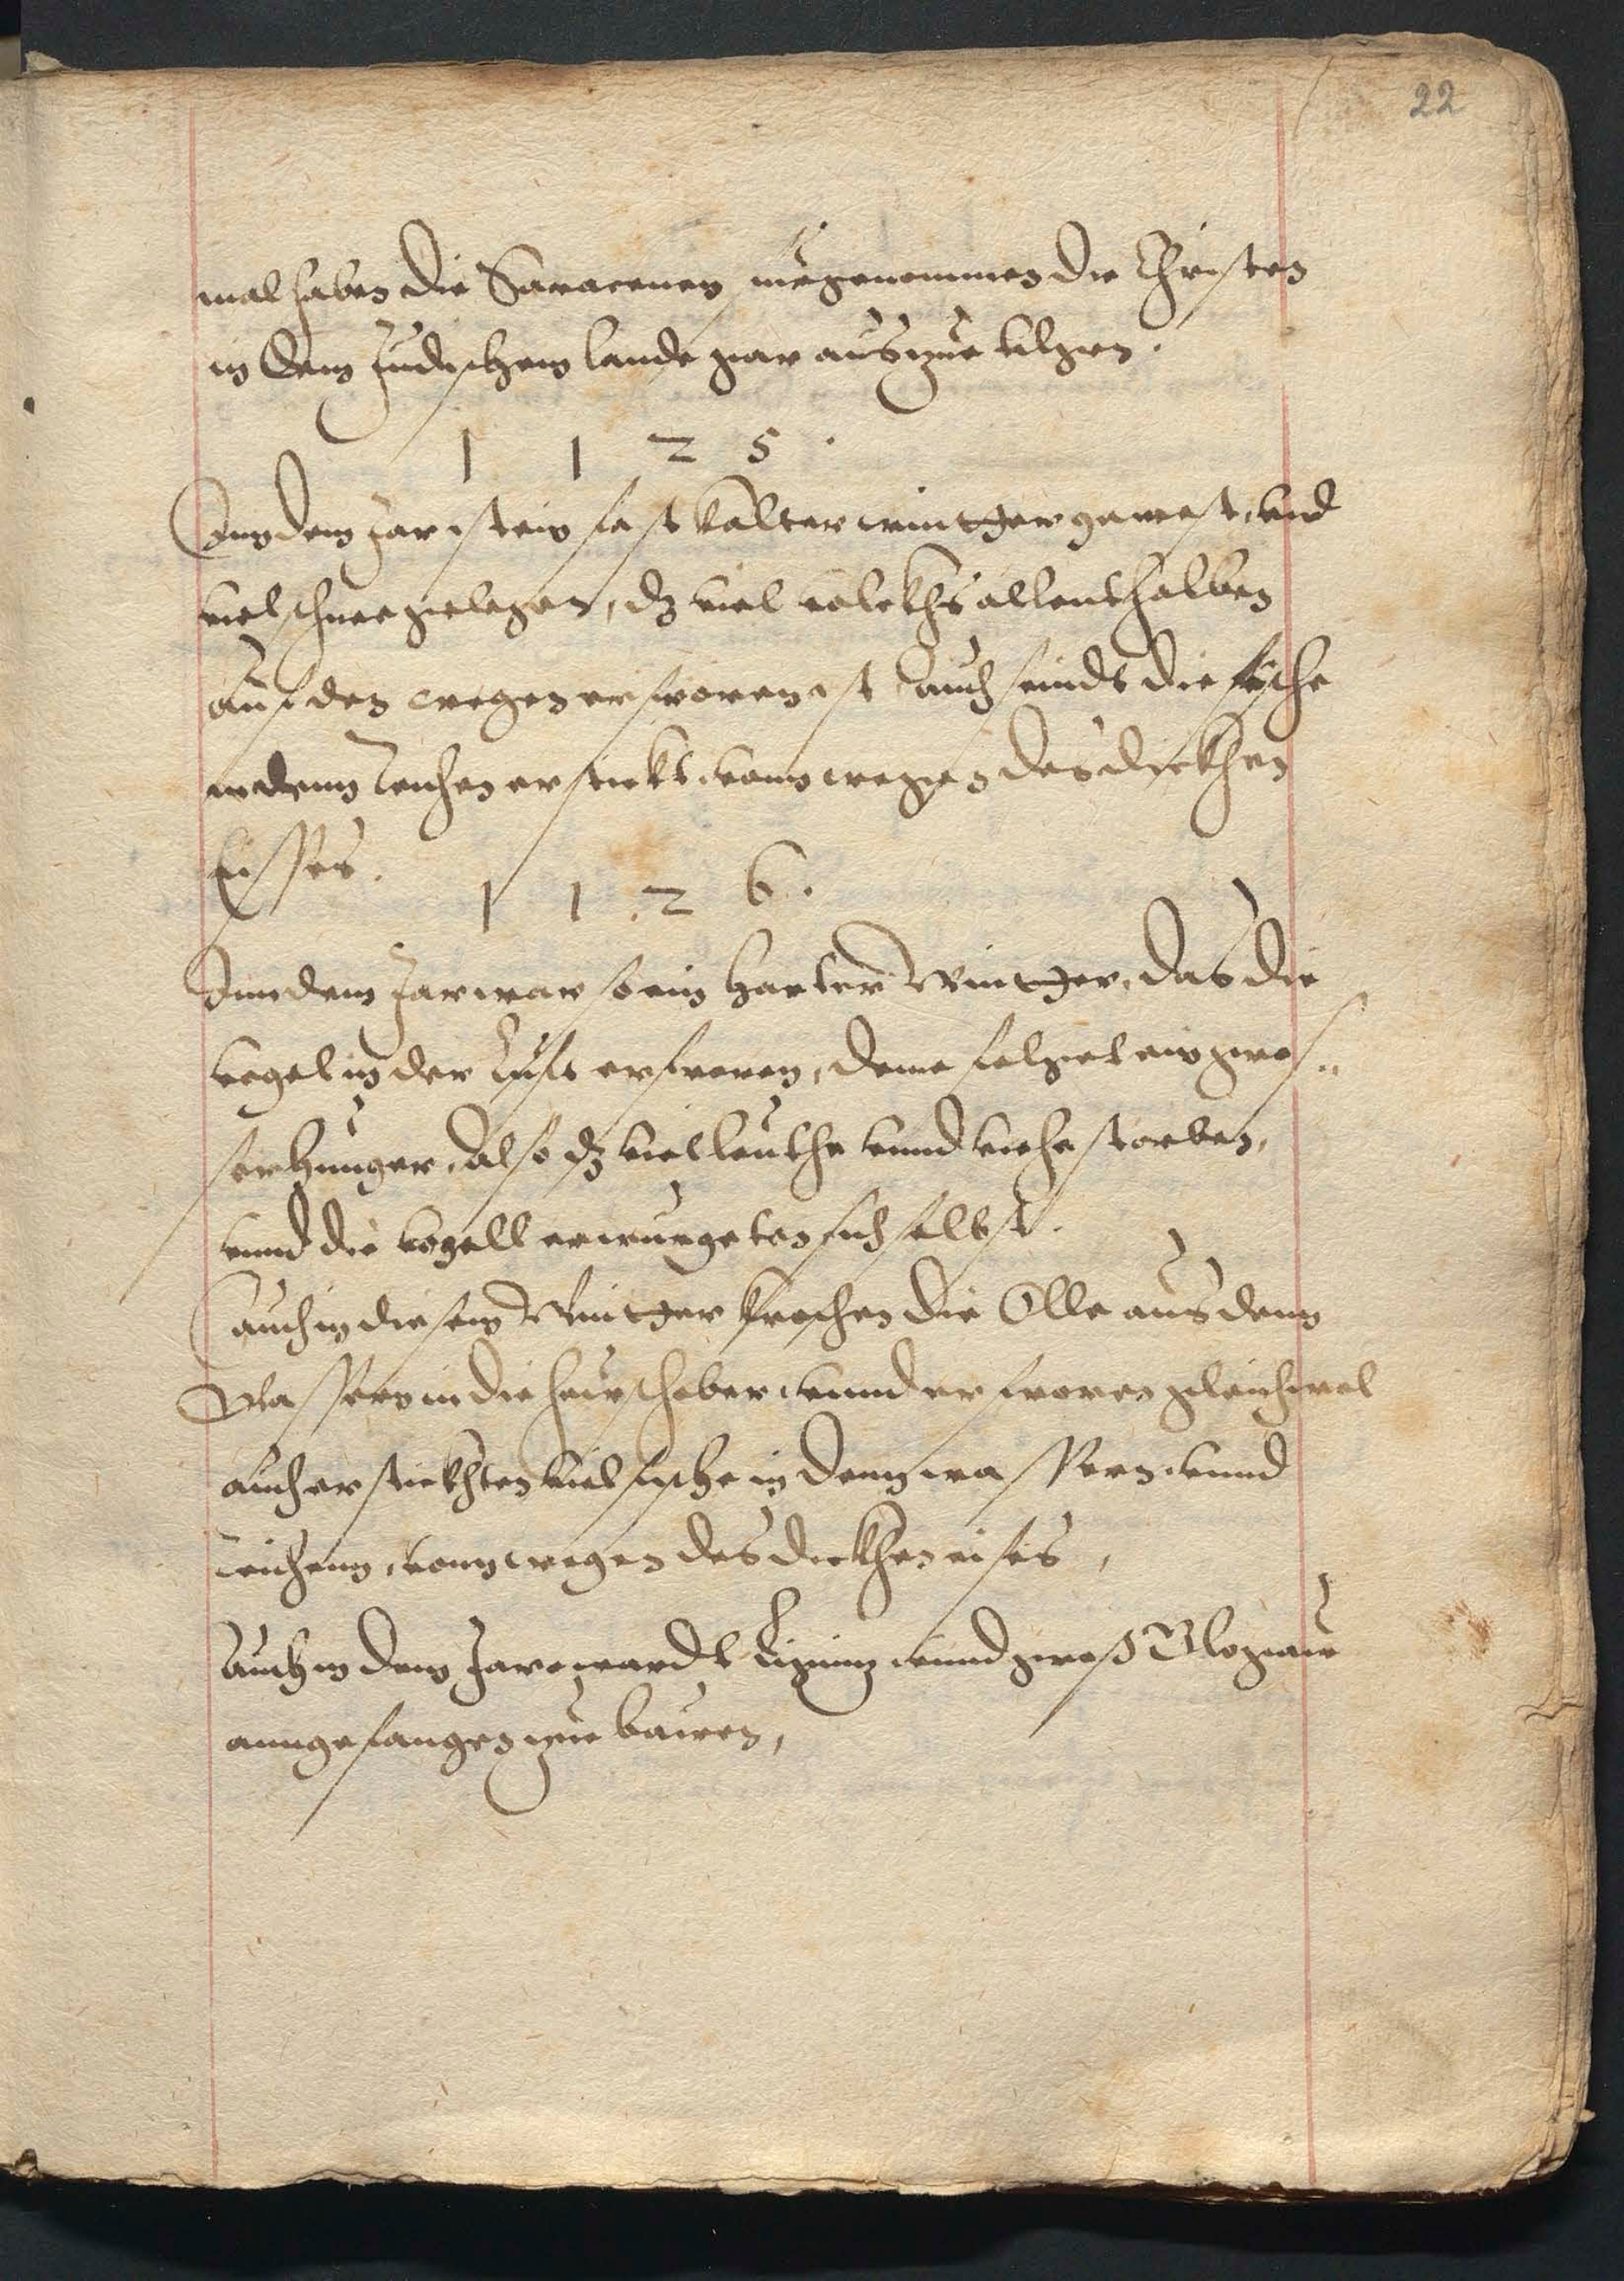 22
mal haben die Saracenen fürgenommen die Christen
in dem Judischem lande gar auszue tilgen.
1 1 2 5.
Inn dem Jar ist ein fast kalter wintther gewest, vnd
viel schnee gelegen, dz viel volckhs allenthalben
auf den wegen erfroren ist, auch seindt die fische
in denn Teichen erstickt, vonn wegen des dickhen
Eisses.
1 1 2 6.
Inn dem Jar war so ein harter Wintther, das die
vogel in der Lufft erfroren, deme folget ein gros=
ser hunger, also dz viel leuthe vnnd viehe storben,
vnnd die vogell erwurgeten sich selbst.
Auch in diesem Wintther krochen die Olle aus denn
Wassern in die heuschober, vnnd erfroren gleichwol
auch erstickhten viel fische in denn wassern, vnnd
Teichenn, vonn wegen des dickhen eises,
Auch in dem Jare wardt Lignitz vnnd gross Glogaw
anngefangen zue bawen,